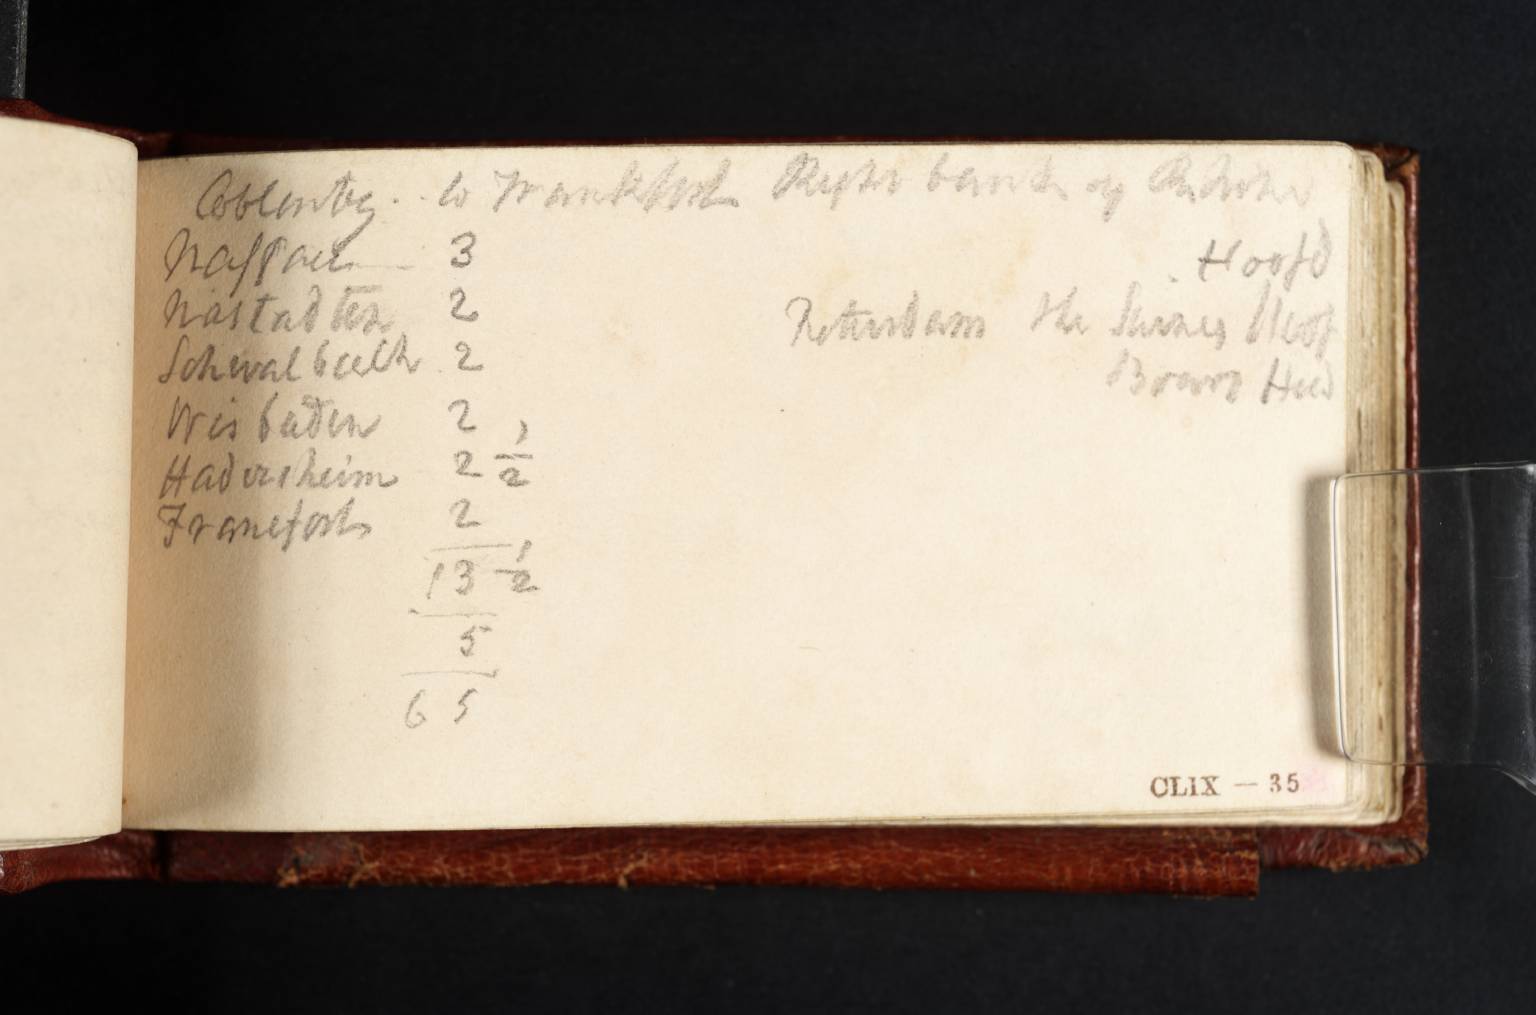 Coblentz .. to Frankfort Right bank of Rhine
Nassau 3
Nastadten 2
Schwalbach 2
Wisbaden 2
Hadersheim 2 1/2
Francfort 2
13 1/2
5
65
Hoofd
Rotterdam the
CLIX — 35